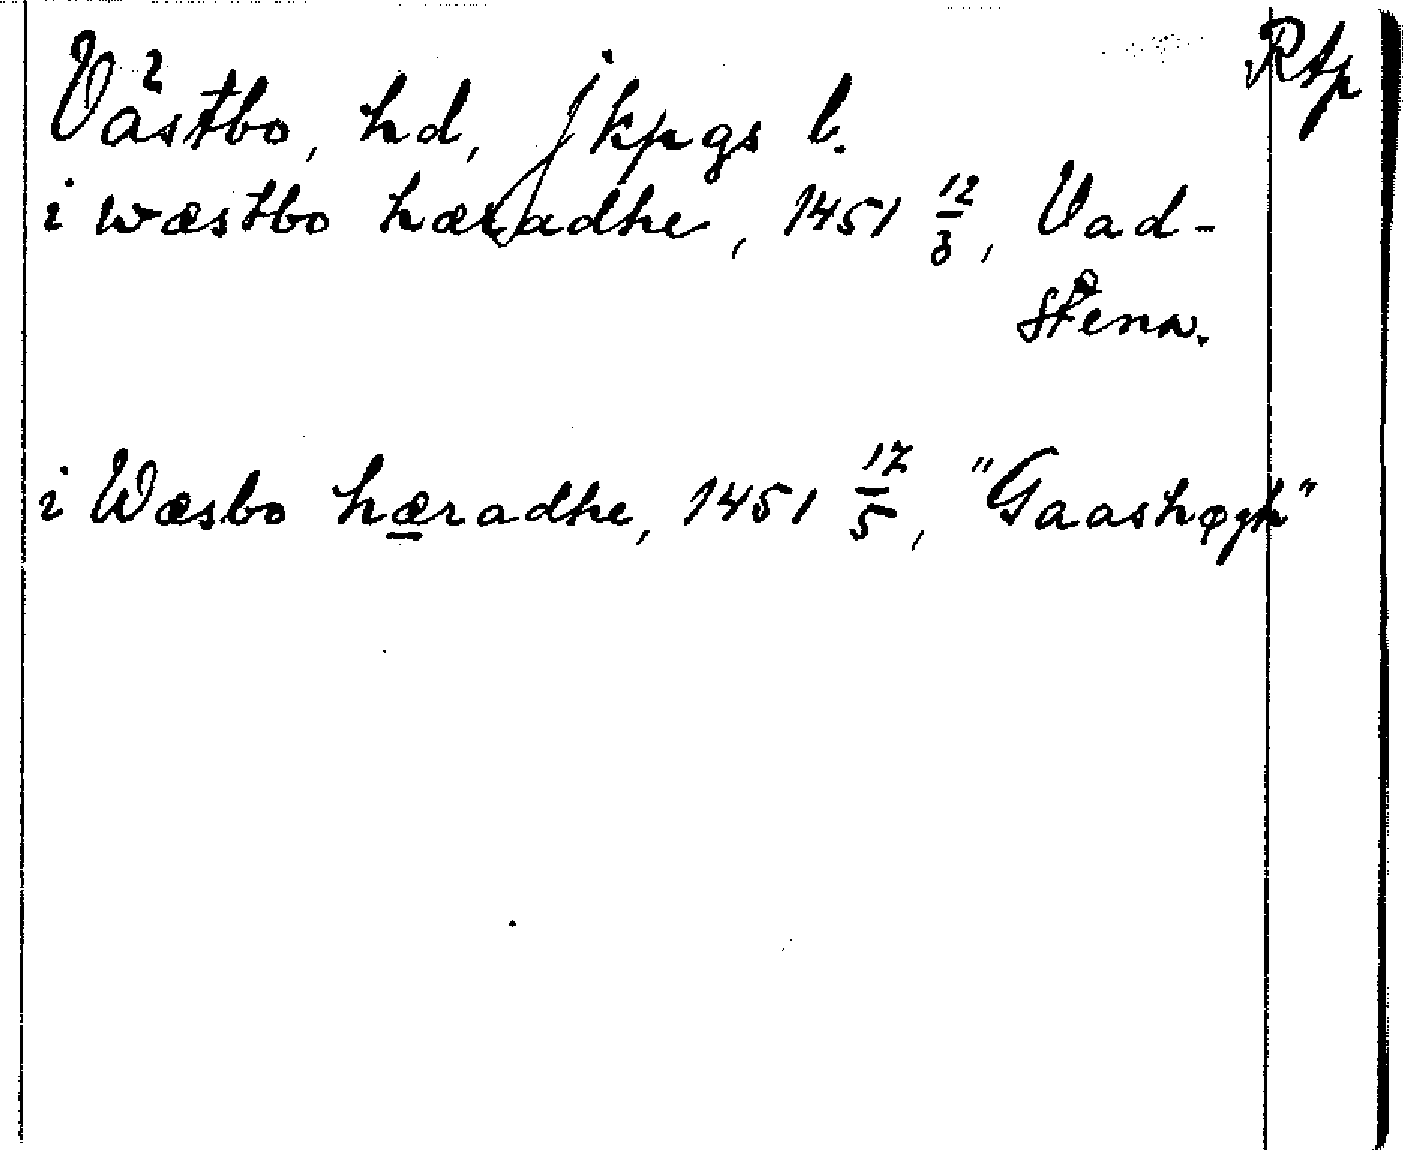 Rtp
Västbo, hd, Jkpgs l.
i wæstbo hæradhe, 1451 12/3, Vad-
stena.
i Wæsbo hæradhe, 1451 17/5, "Gaashøgh"